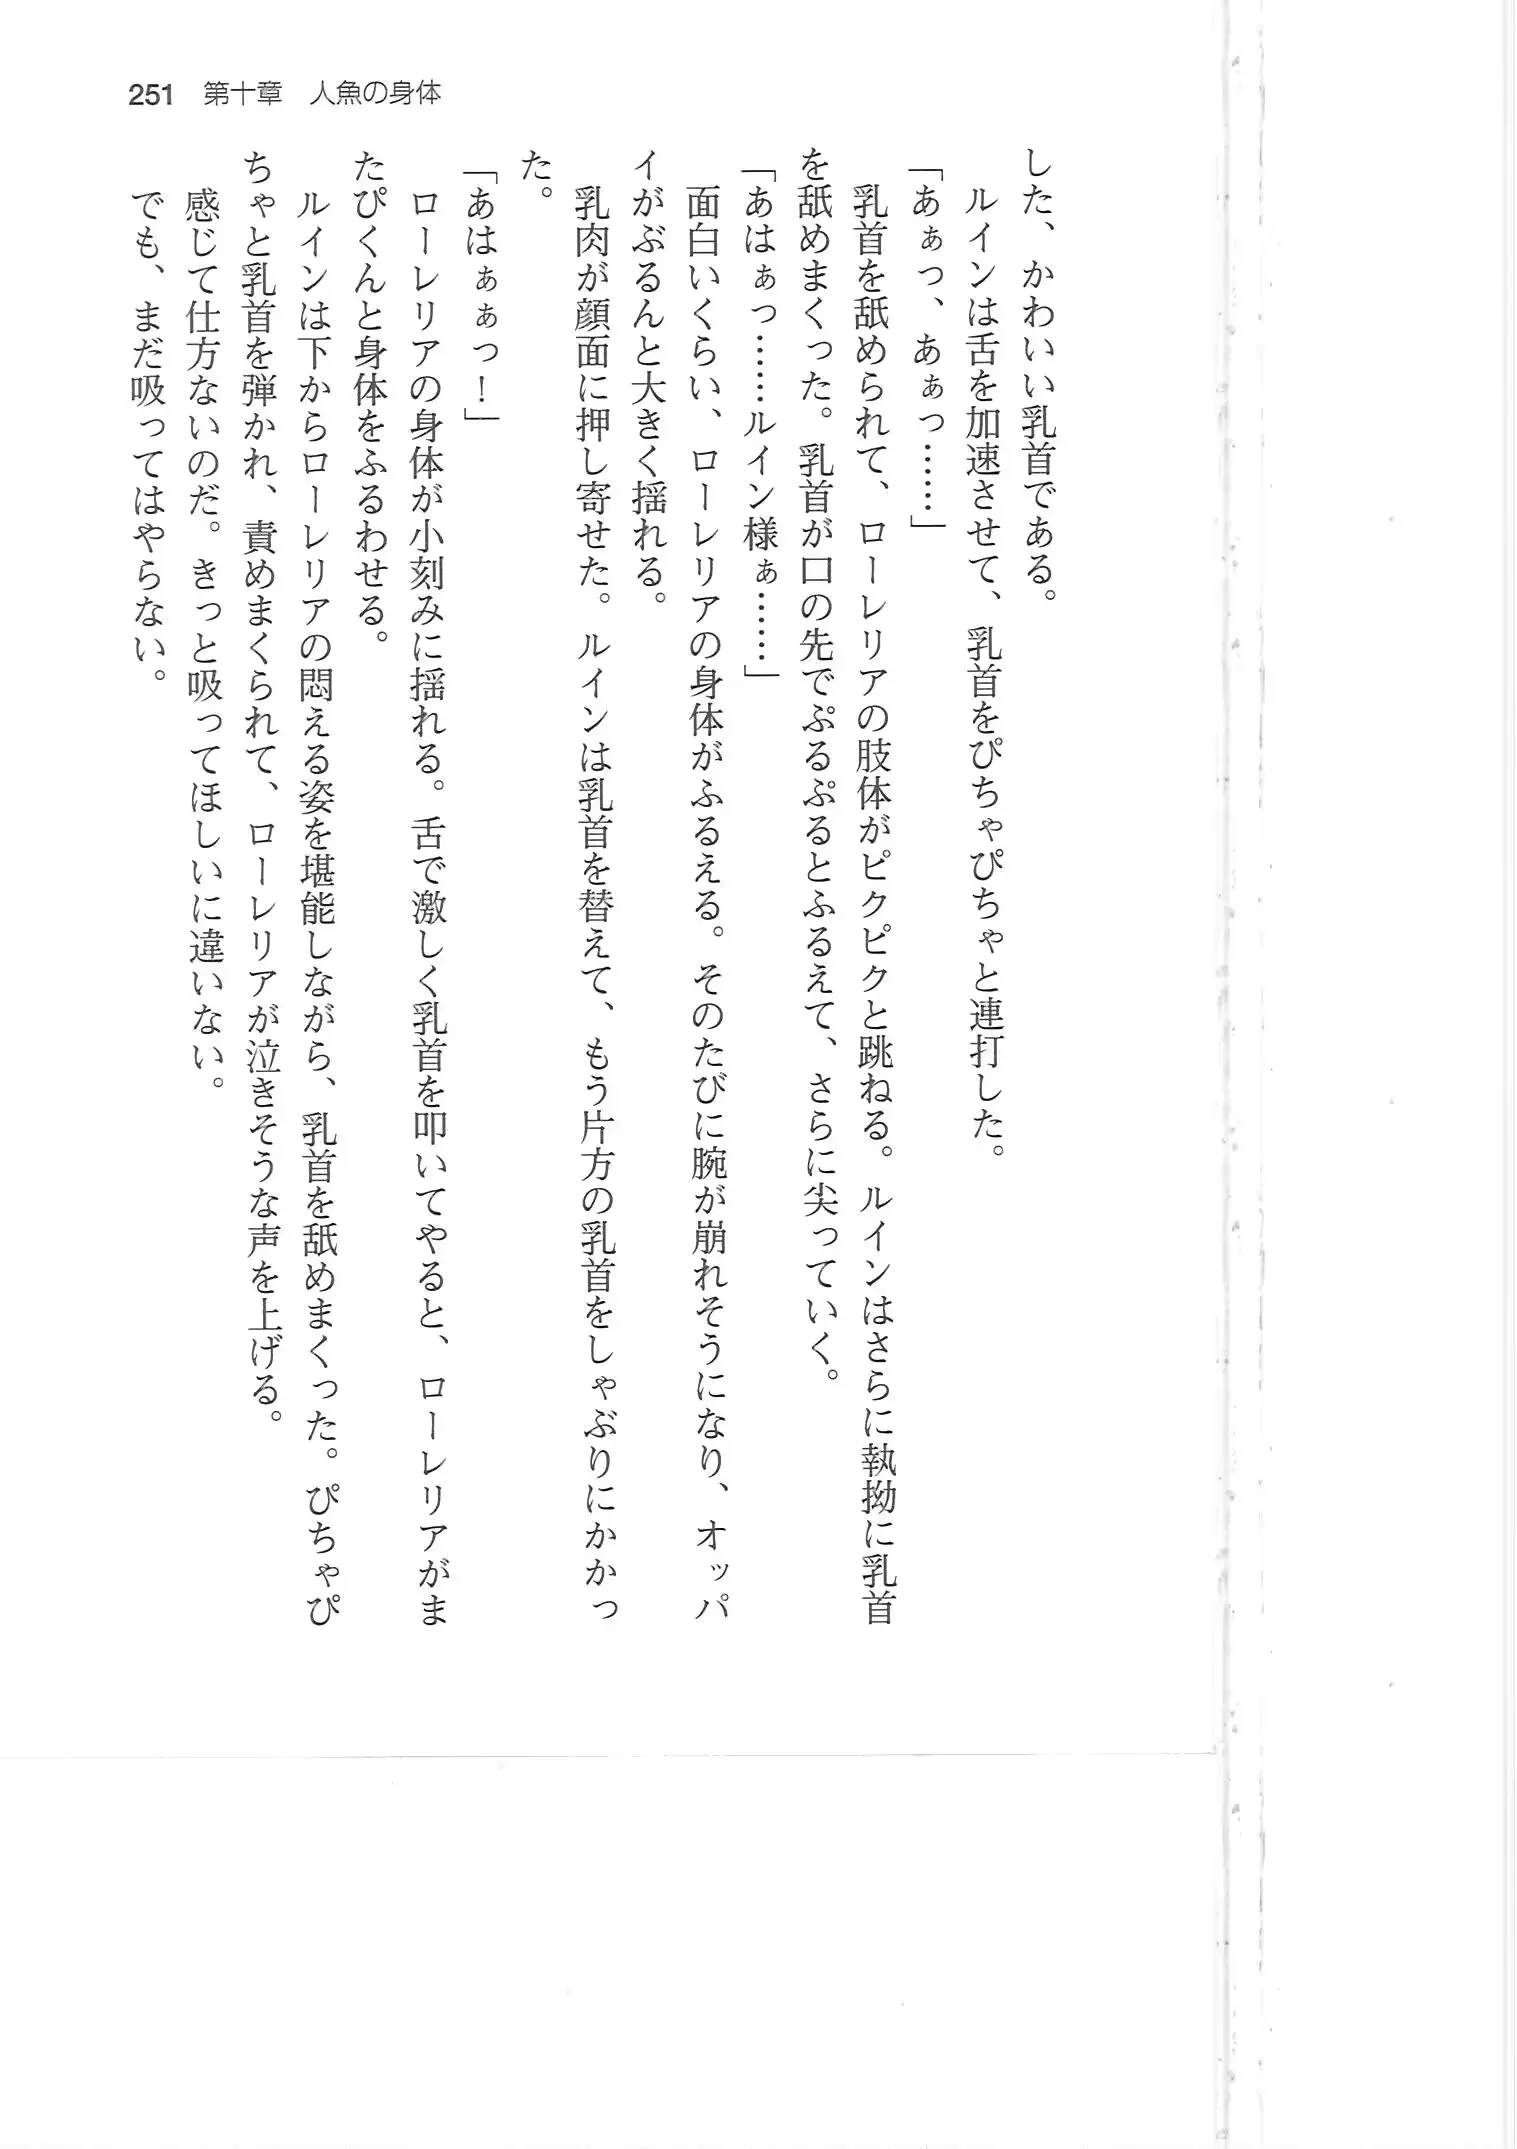 251 第十章 人魚の身体
した、かわいい乳首である。
ルインは舌を加速させて、乳首をぴちゃぴちゃと連打した。
「あぁっ、あぁっ……」
乳首を舐められて、ローレリアの肢体がピクピクと跳ねる。ルインはさらに執拗に乳首
を舐めまくった。乳首が口の先でぷるぷるとふるえて、さらに尖っていく。
「あはぁっ……ルイン様ぁ……」
面白いくらい、ローレリアの身体がふるえる。そのたびに腕が崩れそうになり、オッパ
イがぶるんと大きく揺れる。
乳肉が顔面に押し寄せた。ルインは乳首を替えて、もう片方の乳首をしゃぶりにかかっ
た。
「あはぁぁっ！」
ローレリアの身体が小刻みに揺れる。舌で激しく乳首を叩いてやると、ローレリアがま
たぴくんと身体をふるわせる。
ルインは下からローレリアの悶える姿を堪能しながら、乳首を舐めまくった。ぴちゃぴ
ちゃと乳首を弾かれ、責めまくられて、ローレリアが泣きそうな声を上げる。
感じて仕方ないのだ。きっと吸ってほしいに違いない。
でも、まだ吸ってはやらない。